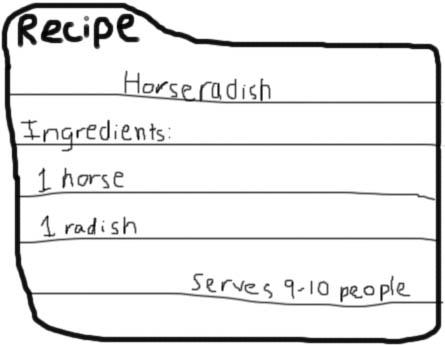 Recipe
Horseradish
Ingredients:
1 horse
1 radish
Serves 9-10 people